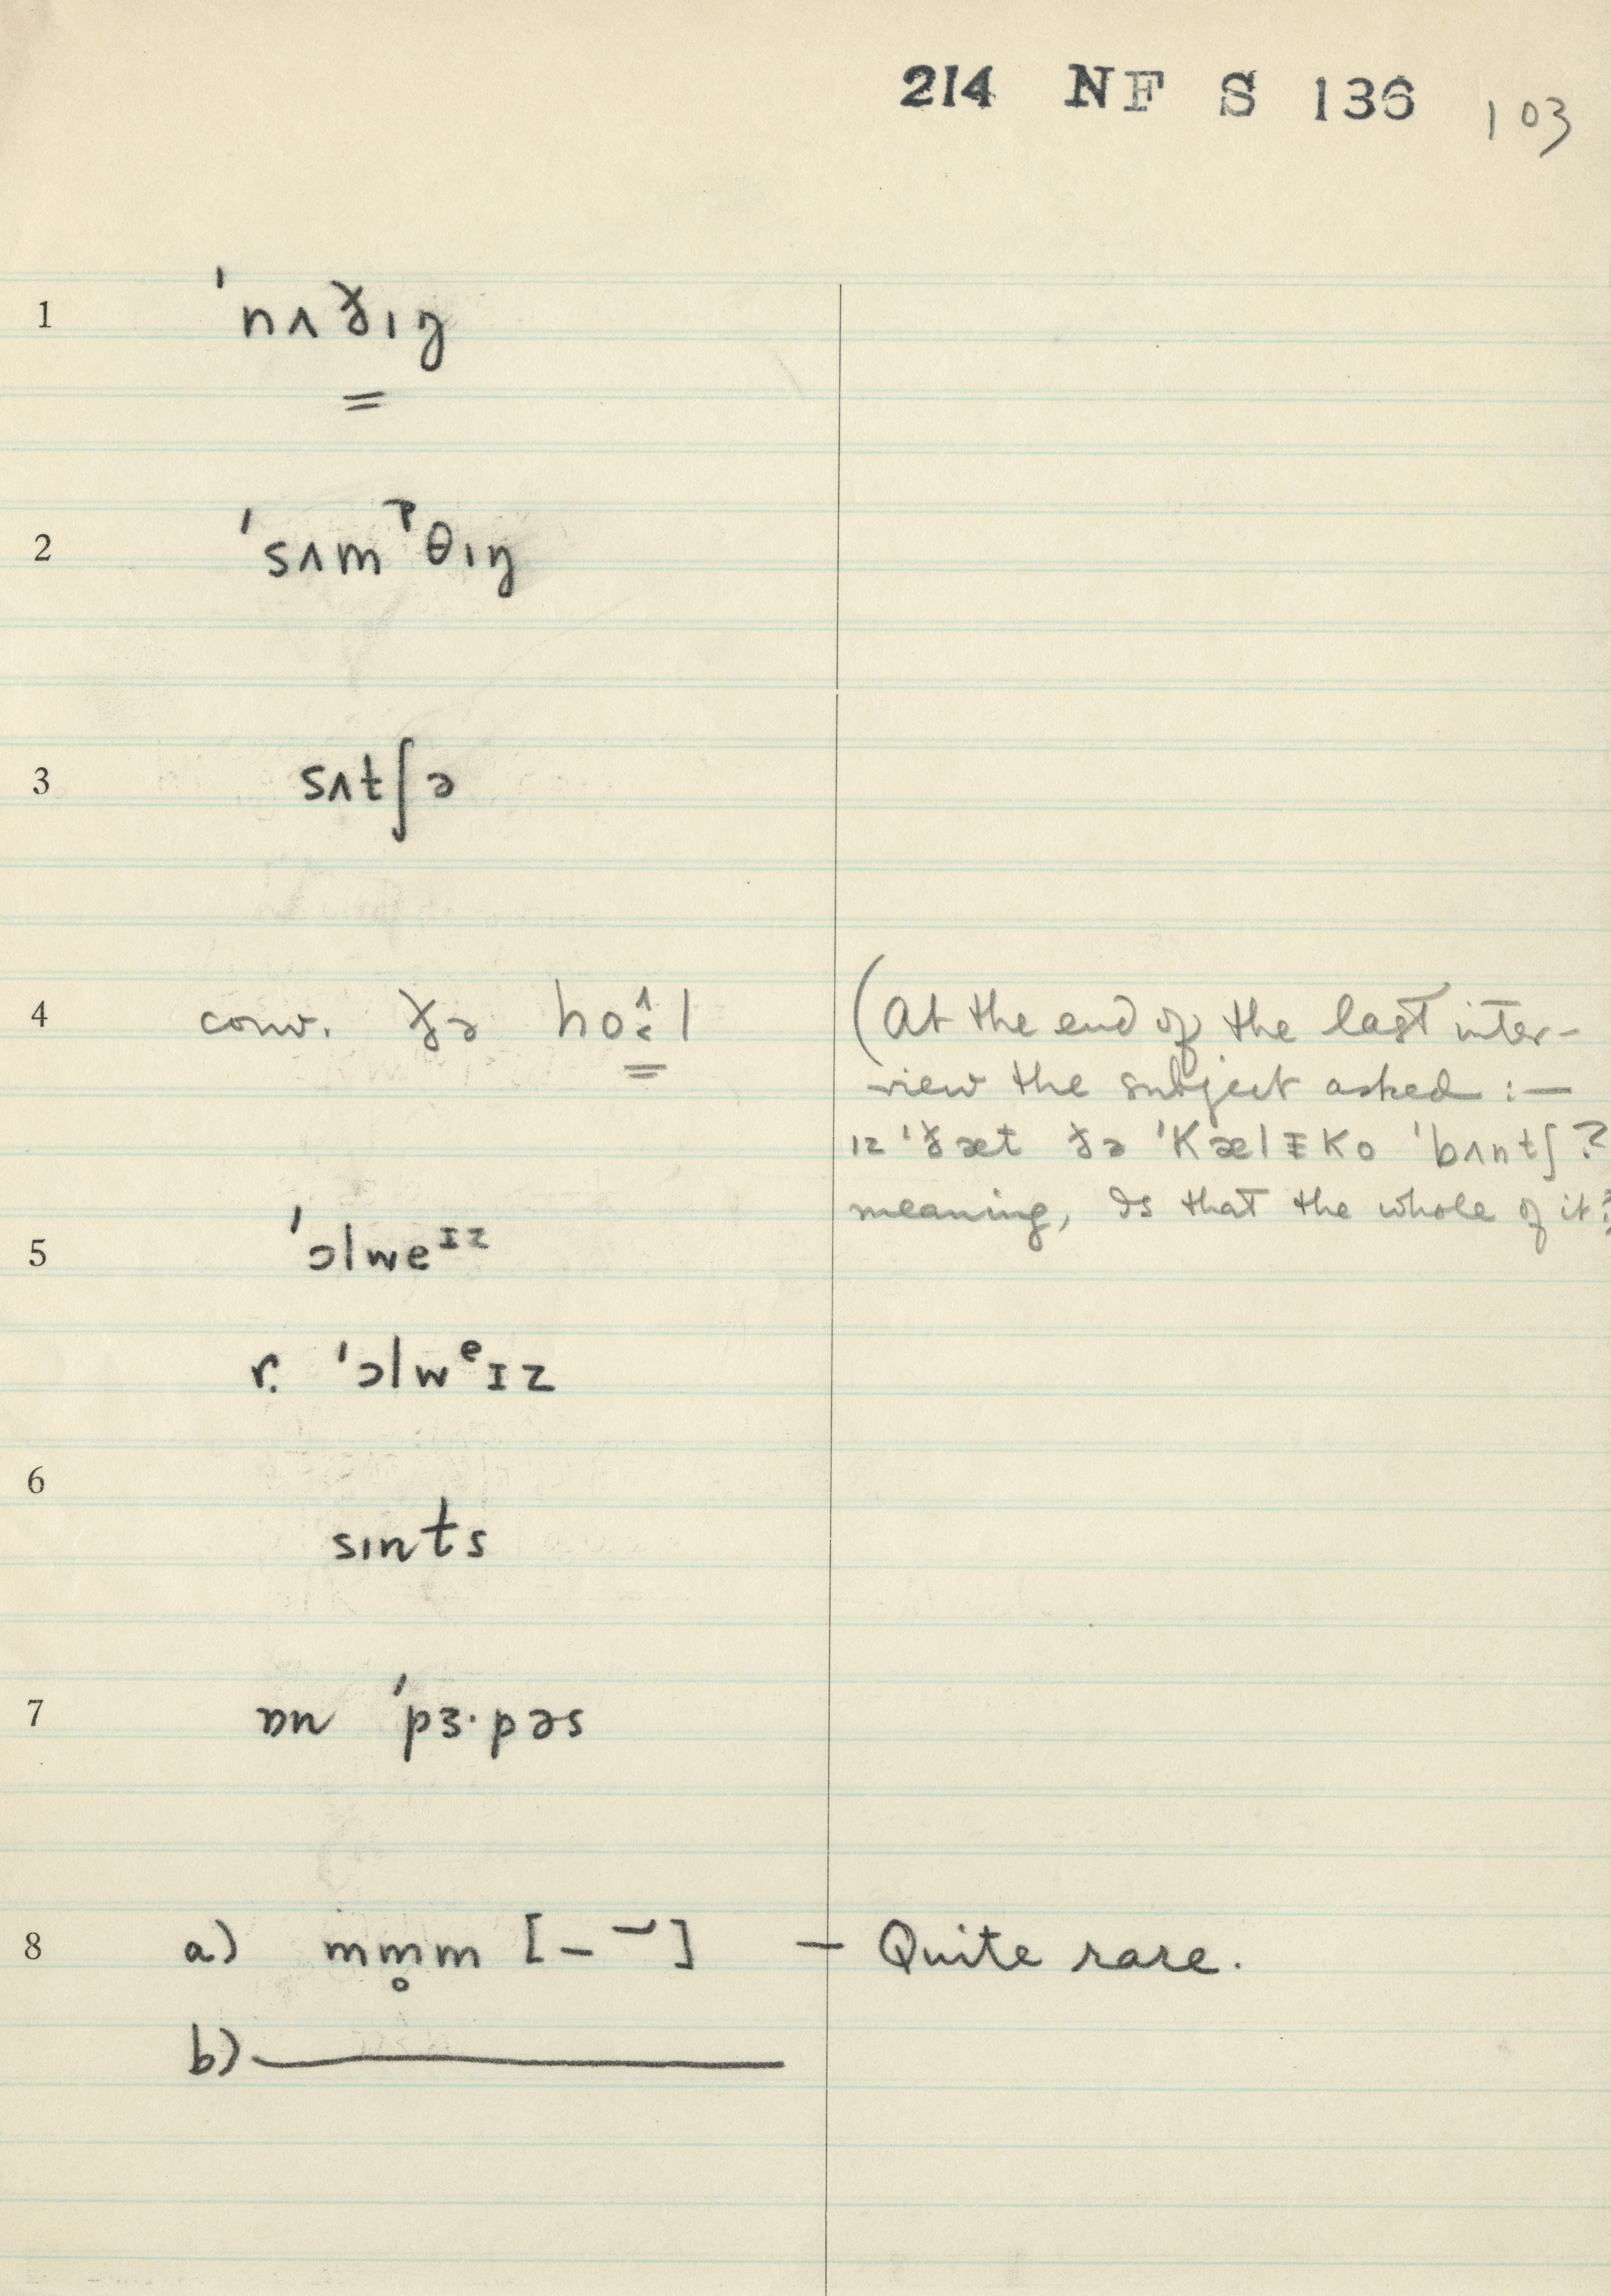 214 NF S 136 103
1 ˈnʌðɪŋ
=
2 ˈsʌmᵖθɪŋ
3 sʌtʃə
4 conv. ðə ho˰̂l (At the end of the last inter-
view the subject asked :—
ɪz ˈðæt ðə ˈkælɪko ˈbʌntʃ?
meaning, Is that the whole of it?
5 ˈɔlweᶦᶻ
r. ˈɔlwᵉɪz
6 sɪnts
7 ɒn ˈpɜ·pəs
8 a) mm̥m [– ¯˘] — Quite rare.
b) ———